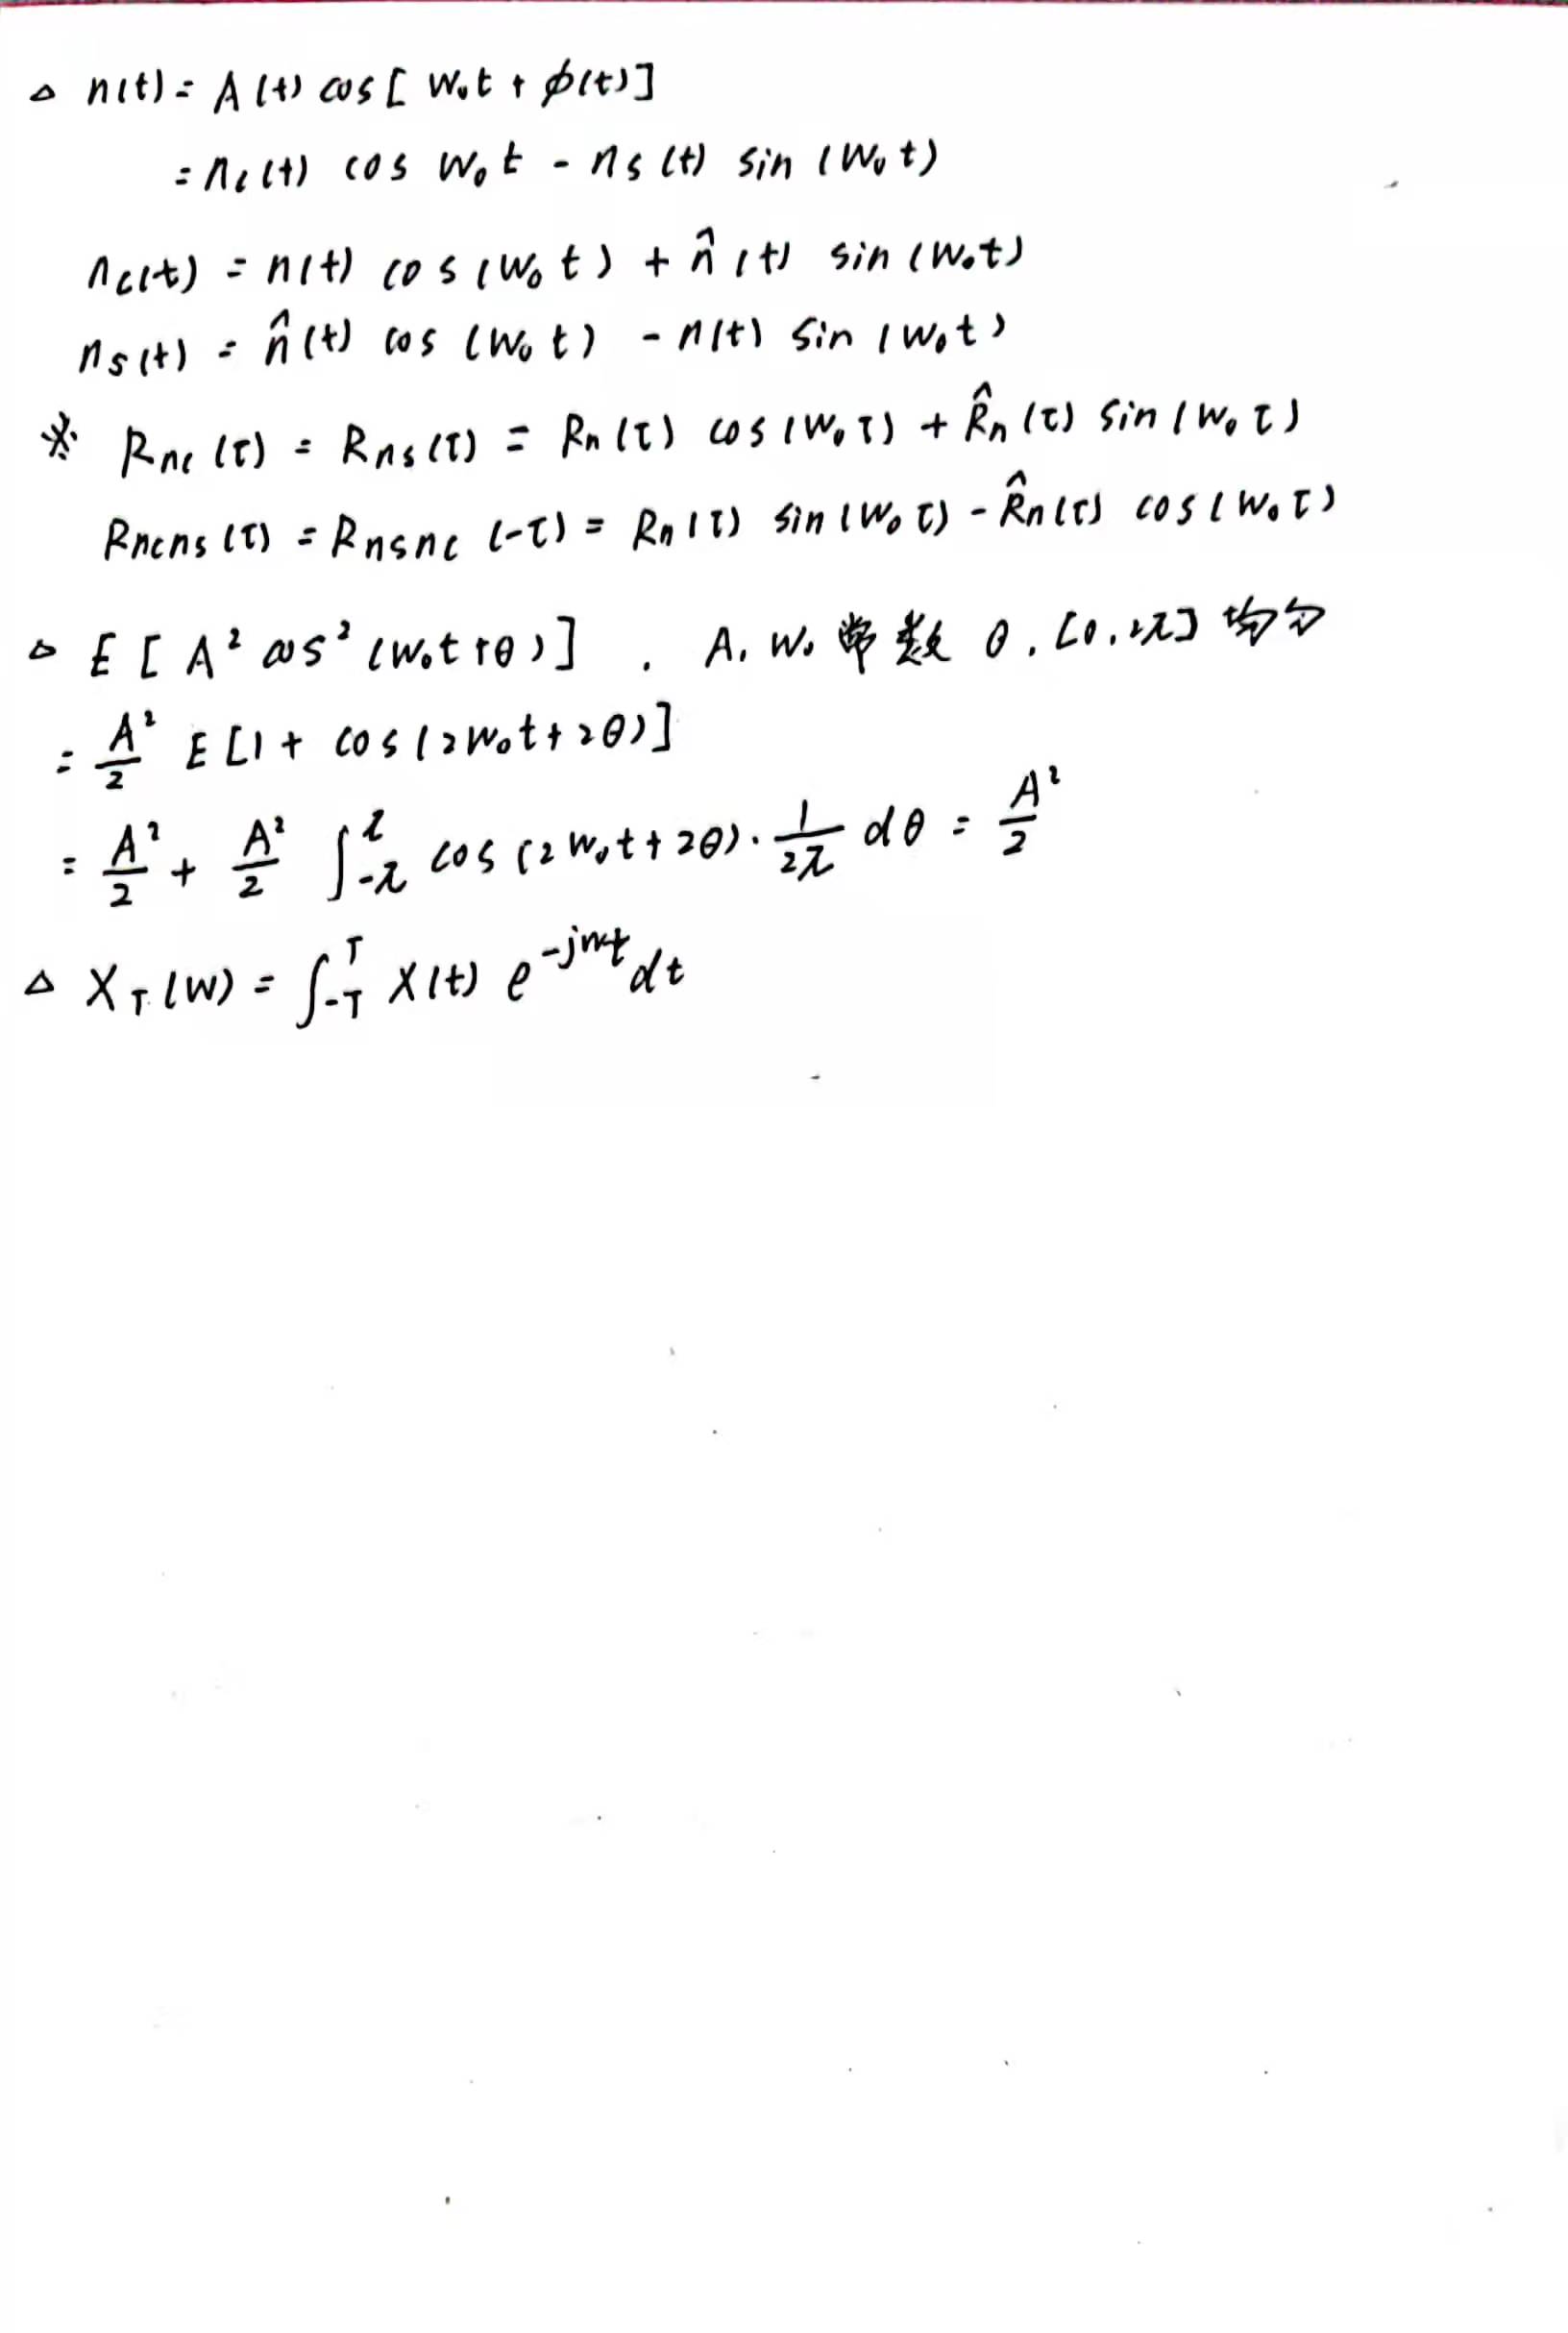 △ n(t) = A(t) cos[ w₀t + φ(t)]
= nc(t) cos w₀t - ns(t) sin(w₀t)
nc(t) = n(t) cos(w₀t) + n̂(t) sin(w₀t)
ns(t) = n̂(t) cos(w₀t) - n(t) sin(w₀t)
※ Rnc(τ) = Rns(τ) = Rn(τ) cos(w₀τ) + R̂n(τ) sin(w₀τ)
Rncns(τ) = Rnsnc(-τ) = Rn(τ) sin(w₀τ) - R̂n(τ) cos(w₀τ)
△ E[A² cos²(w₀t+θ)] . A, w₀ 常数 θ, [0, 2π] 均匀
= A²/2 E[1 + cos(2w₀t+2θ)]
= A²/2 + A²/2 ∫_{-π}^{π} cos(2w₀t+2θ)·1/2π dθ = A²/2
△ X_T(w) = ∫_{-T}^{T} X(t) e^{-jwt} dt